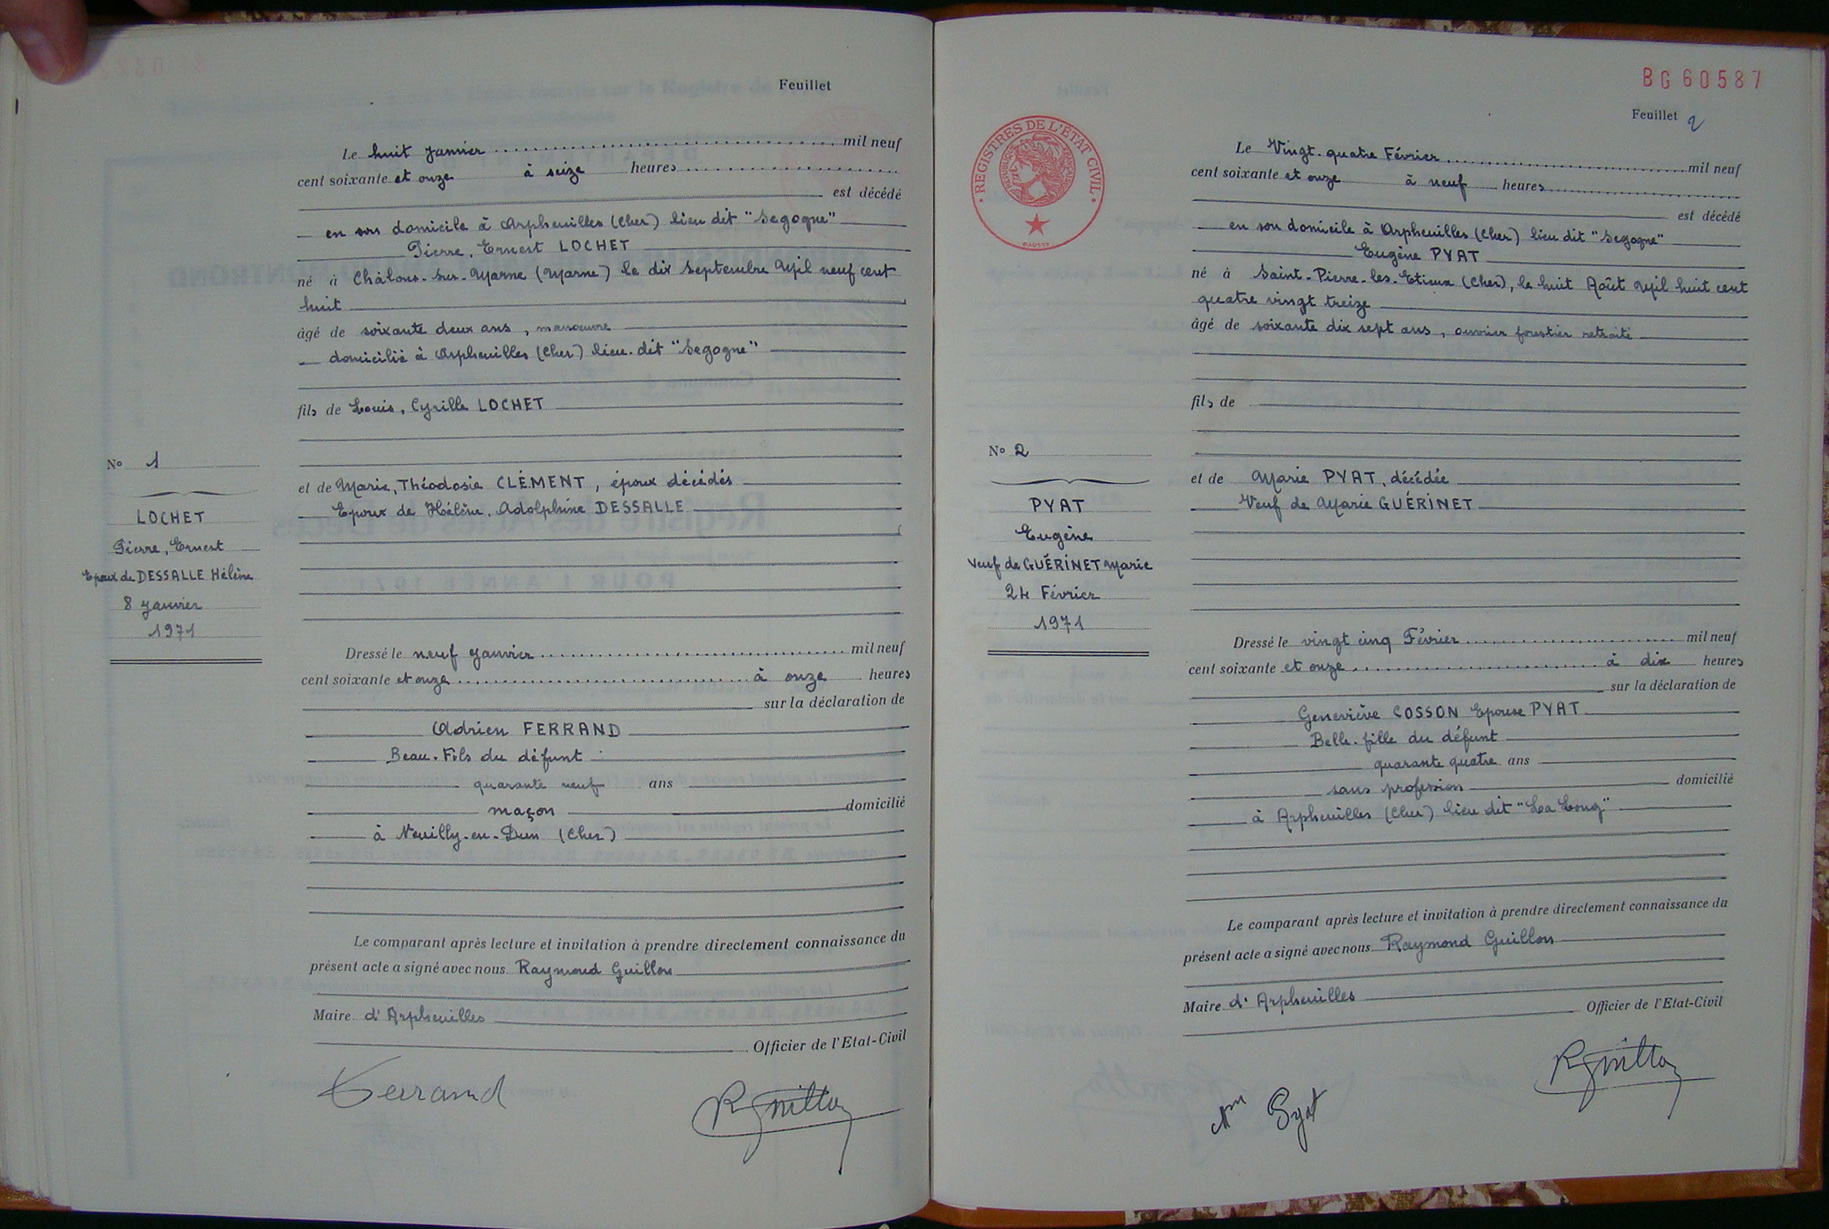 Feuillet
Le huit Janvier mil neuf
cent soixante et onze à seize heures
est décédé
en son domicile à Arpheuilles (Cher) lieu dit "Segogne"
Pierre, Ernest LOCHET
né à Châlons-sur-Marne (Marne) le dix Septembre Mil neuf cent
huit
âgé de soixante deux ans, manœuvre
domicilié à Arpheuilles (Cher) lieu-dit "Segogne"
fils de Louis, Cyrille LOCHET
et de Marie, Théodosie CLÉMENT, époux décédés
Epoux de Hélène, Adolphine DESSALLE
N° 1
LOCHET
Pierre, Ernest
Epoux de DESSALLE Hélène
8 Janvier
1971
Dressé le neuf Janvier mil neuf
cent soixante et onze à onze heures
sur la déclaration de
Adrien FERRAND
Beau-Fils du défunt
quarante neuf ans
maçon domicilié
à Neuilly-en-Dun (Cher)
Le comparant après lecture et invitation à prendre directement connaissance du
présent acte a signé avec nous Raymond Guillon
Maire d'Arpheuilles
Officier de l'Etat-Civil
Ferrand
RGuillon
BG 60587
Feuillet 2
REGISTRES DE L'ÉTAT CIVIL
Le Vingt-quatre Février mil neuf
cent soixante et onze à neuf heures
est décédé
en son domicile à Arpheuilles (Cher) lieu dit "Segogne"
Eugène PYAT
né à Saint-Pierre-les-Etieux (Cher), le huit Août Mil huit cent
quatre vingt treize
âgé de soixante dix sept ans, ouvrier forestier retraité
fils de
et de Marie PYAT, décédée
Veuf de Marie GUÉRINET
N° 2
PYAT
Eugène
Veuf de GUÉRINET Marie
24 Février
1971
Dressé le vingt cinq Février mil neuf
cent soixante et onze à dix heures
sur la déclaration de
Geneviève COSSON Epouse PYAT
Belle-fille du défunt
quarante quatre ans
sans profession domicilié
à Arpheuilles (Cher) lieu dit "La Loug"
Le comparant après lecture et invitation à prendre directement connaissance du
présent acte a signé avec nous Raymond Guillon
Maire d'Arpheuilles
Officier de l'Etat-Civil
Mm Pyat
RGuillon